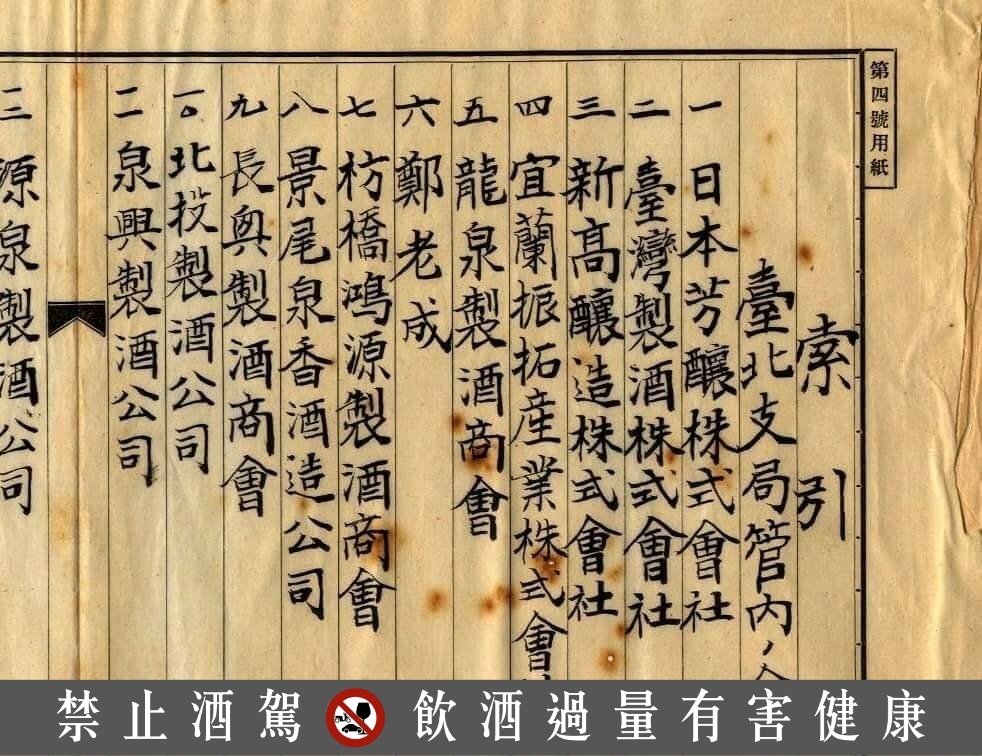 第四號用紙
索引
臺北支局管內ノ
一 日本芳釀株式會社
二 臺灣製酒株式會社
三 新高釀造株式會社
四 宜蘭振拓産業株式會
五 龍泉製酒商會
六 鄭老成
七 枋橋鴻源製酒商會
八 景尾泉香酒造公司
九 長興製酒商會
一〇 北投製酒公司
二 泉興製酒公司
三 源泉製酒公司
禁止酒駕 飲酒過量有害健康